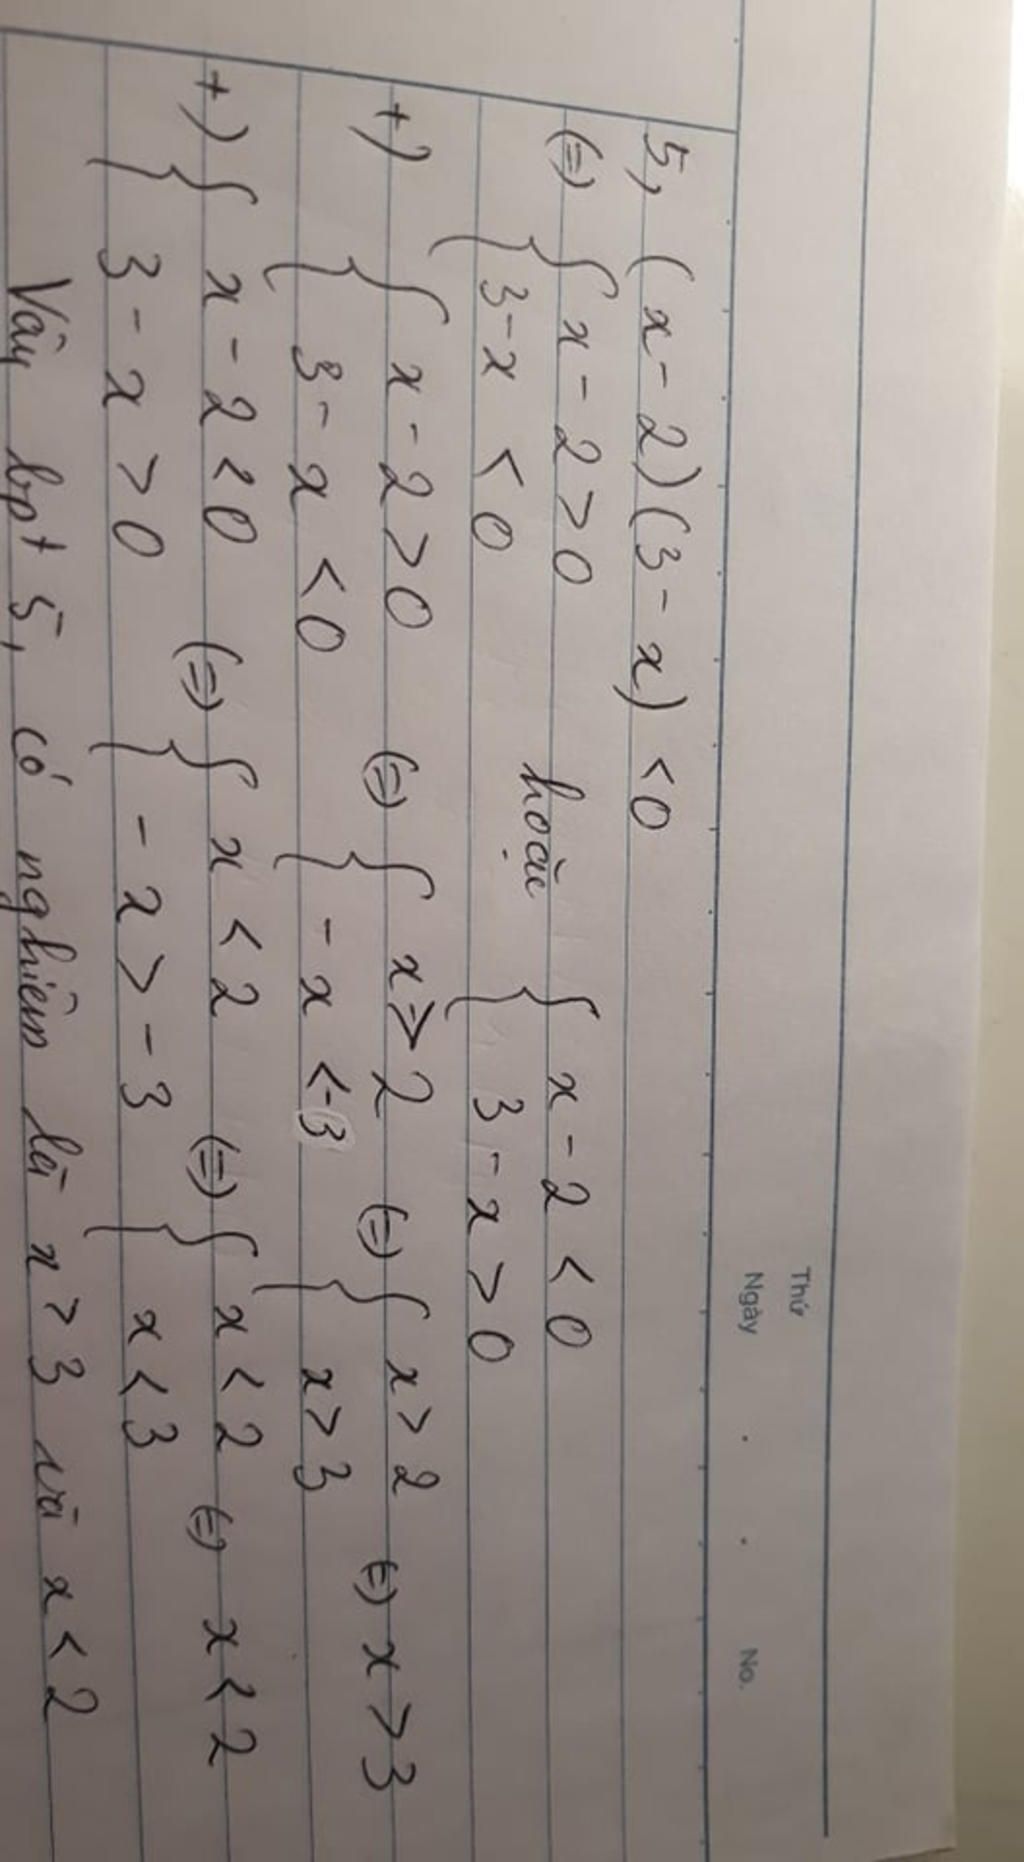 Thứ
Ngày . . No.
5, (x-2)(3-x) <0
(=) { x-2>0 hoặc { x-2<0
{ 3-x <0 { 3-x>0
+) { x-2>0 (=) { x>2 (=) { x>2 (=) x>3
{ 3-x <0 { -x <-3 { x>3
+) { x-2<0 (=) { x<2 (=) { x<2 (=) x<2
{ 3-x>0 { -x>-3 { x<3
Vậy bpt 5, có nghiệm là x>3 và x<2